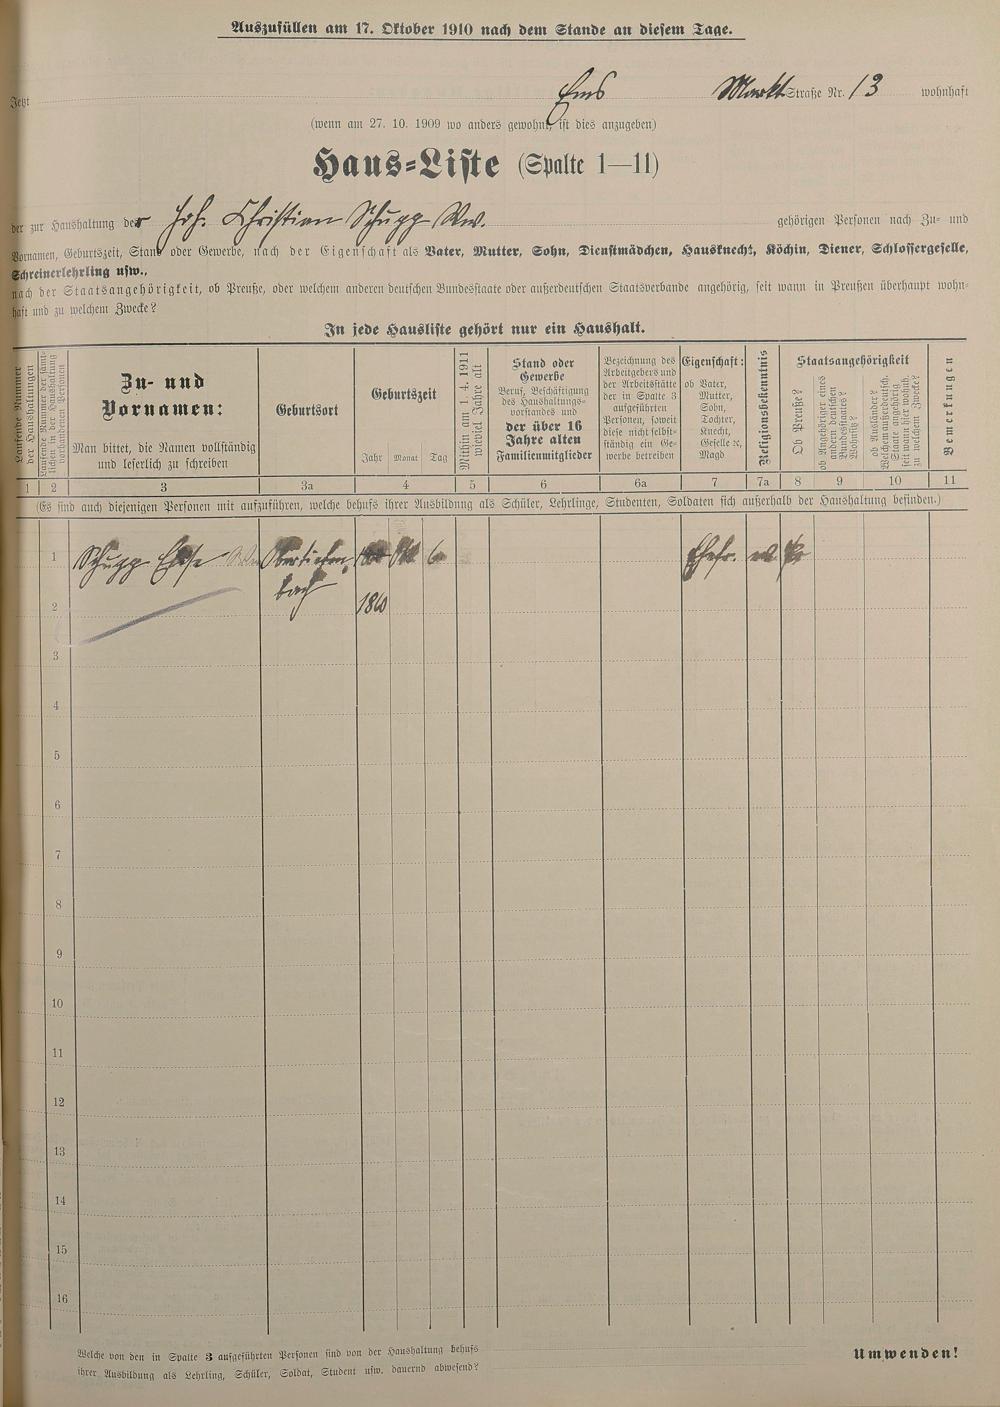 Auszufüllen am 17. Oktober 1910 nach dem Stande an diesem Tage.
Jetzt Ems Markt Straße Nr. 13 wohnhaft
(wenn am 27. 10. 1909 wo anders gewohnt, ist dies anzugeben)
Haus-Liste (Spalte 1—11)
der zur Haushaltung der Joh. Christian Schupp Ww. gehörigen Personen nach Zu- und
Vornamen, Geburtszeit, Stand oder Gewerbe, nach der Eigenschaft als Vater, Mutter, Sohn, Dienstmädchen, Hausknecht, Köchin, Diener, Schlossergeselle,
Schreinerlehrling usw.,
nach der Staatsangehörigkeit, ob Preuße, oder welchem anderen deutschen Bundesstaate oder außerdeutschen Staatsverbande angehörig, seit wann in Preußen überhaupt wohn-
haft und zu welchem Zwecke?
In jede Hausliste gehört nur ein Haushalt.
Laufende Nummer
der Haushaltungen
Laufende Nummer der sämt-
lichen in der Haushaltung
vorhandenen Personen
Zu- und
Vornamen:
Man bittet, die Namen vollständig
und leserlich zu schreiben
Geburtsort
Geburtszeit
Jahr Monat Tag
Mithin am 1. 4. 1911
wieviel Jahre alt
Stand oder
Gewerbe
Beruf, Beschäftigung
des Haushaltungs-
vorstandes und
der über 16
Jahre alten
Familienmitglieder
Bezeichnung des
Arbeitgebers und
der Arbeitsstätte
der in Spalte 3
aufgeführten
Personen, soweit
diese nicht selbst-
ständig ein Ge-
werbe betreiben
Eigenschaft:
ob Vater,
Mutter,
Sohn,
Tochter,
Knecht,
Geselle ꝛc,
Magd
Religionsbekenntnis
Staatsangehörigkeit
Ob Preuße?
ob Angehöriger eines
andern deutschen
Bundesstaates?
Wohnsitz?
ob Ausländer?
Welchem außerdeutsch.
Staate angehörig,
seit wann hier wohnh.
zu welchem Zwecke?
Bemerkungen
1 2 3 3a 4 5 6 6a 7 7a 8 9 10 11
(Es sind auch diejenigen Personen mit aufzuführen, welche behufs ihrer Ausbildung als Schüler, Lehrlinge, Studenten, Soldaten sich außerhalb der Haushaltung befinden.)
1 Schupp Elise Obertiefen- Okt 6 Ehefr. ev. Pr
bach
2 1860
3
4
5
6
7
8
9
10
11
12
13
14
15
16
Welche von den in Spalte 3 aufgeführten Personen sind von der Haushaltung behufs
ihrer Ausbildung als Lehrling, Schüler, Soldat, Student usw. dauernd abwesend?
Umwenden!